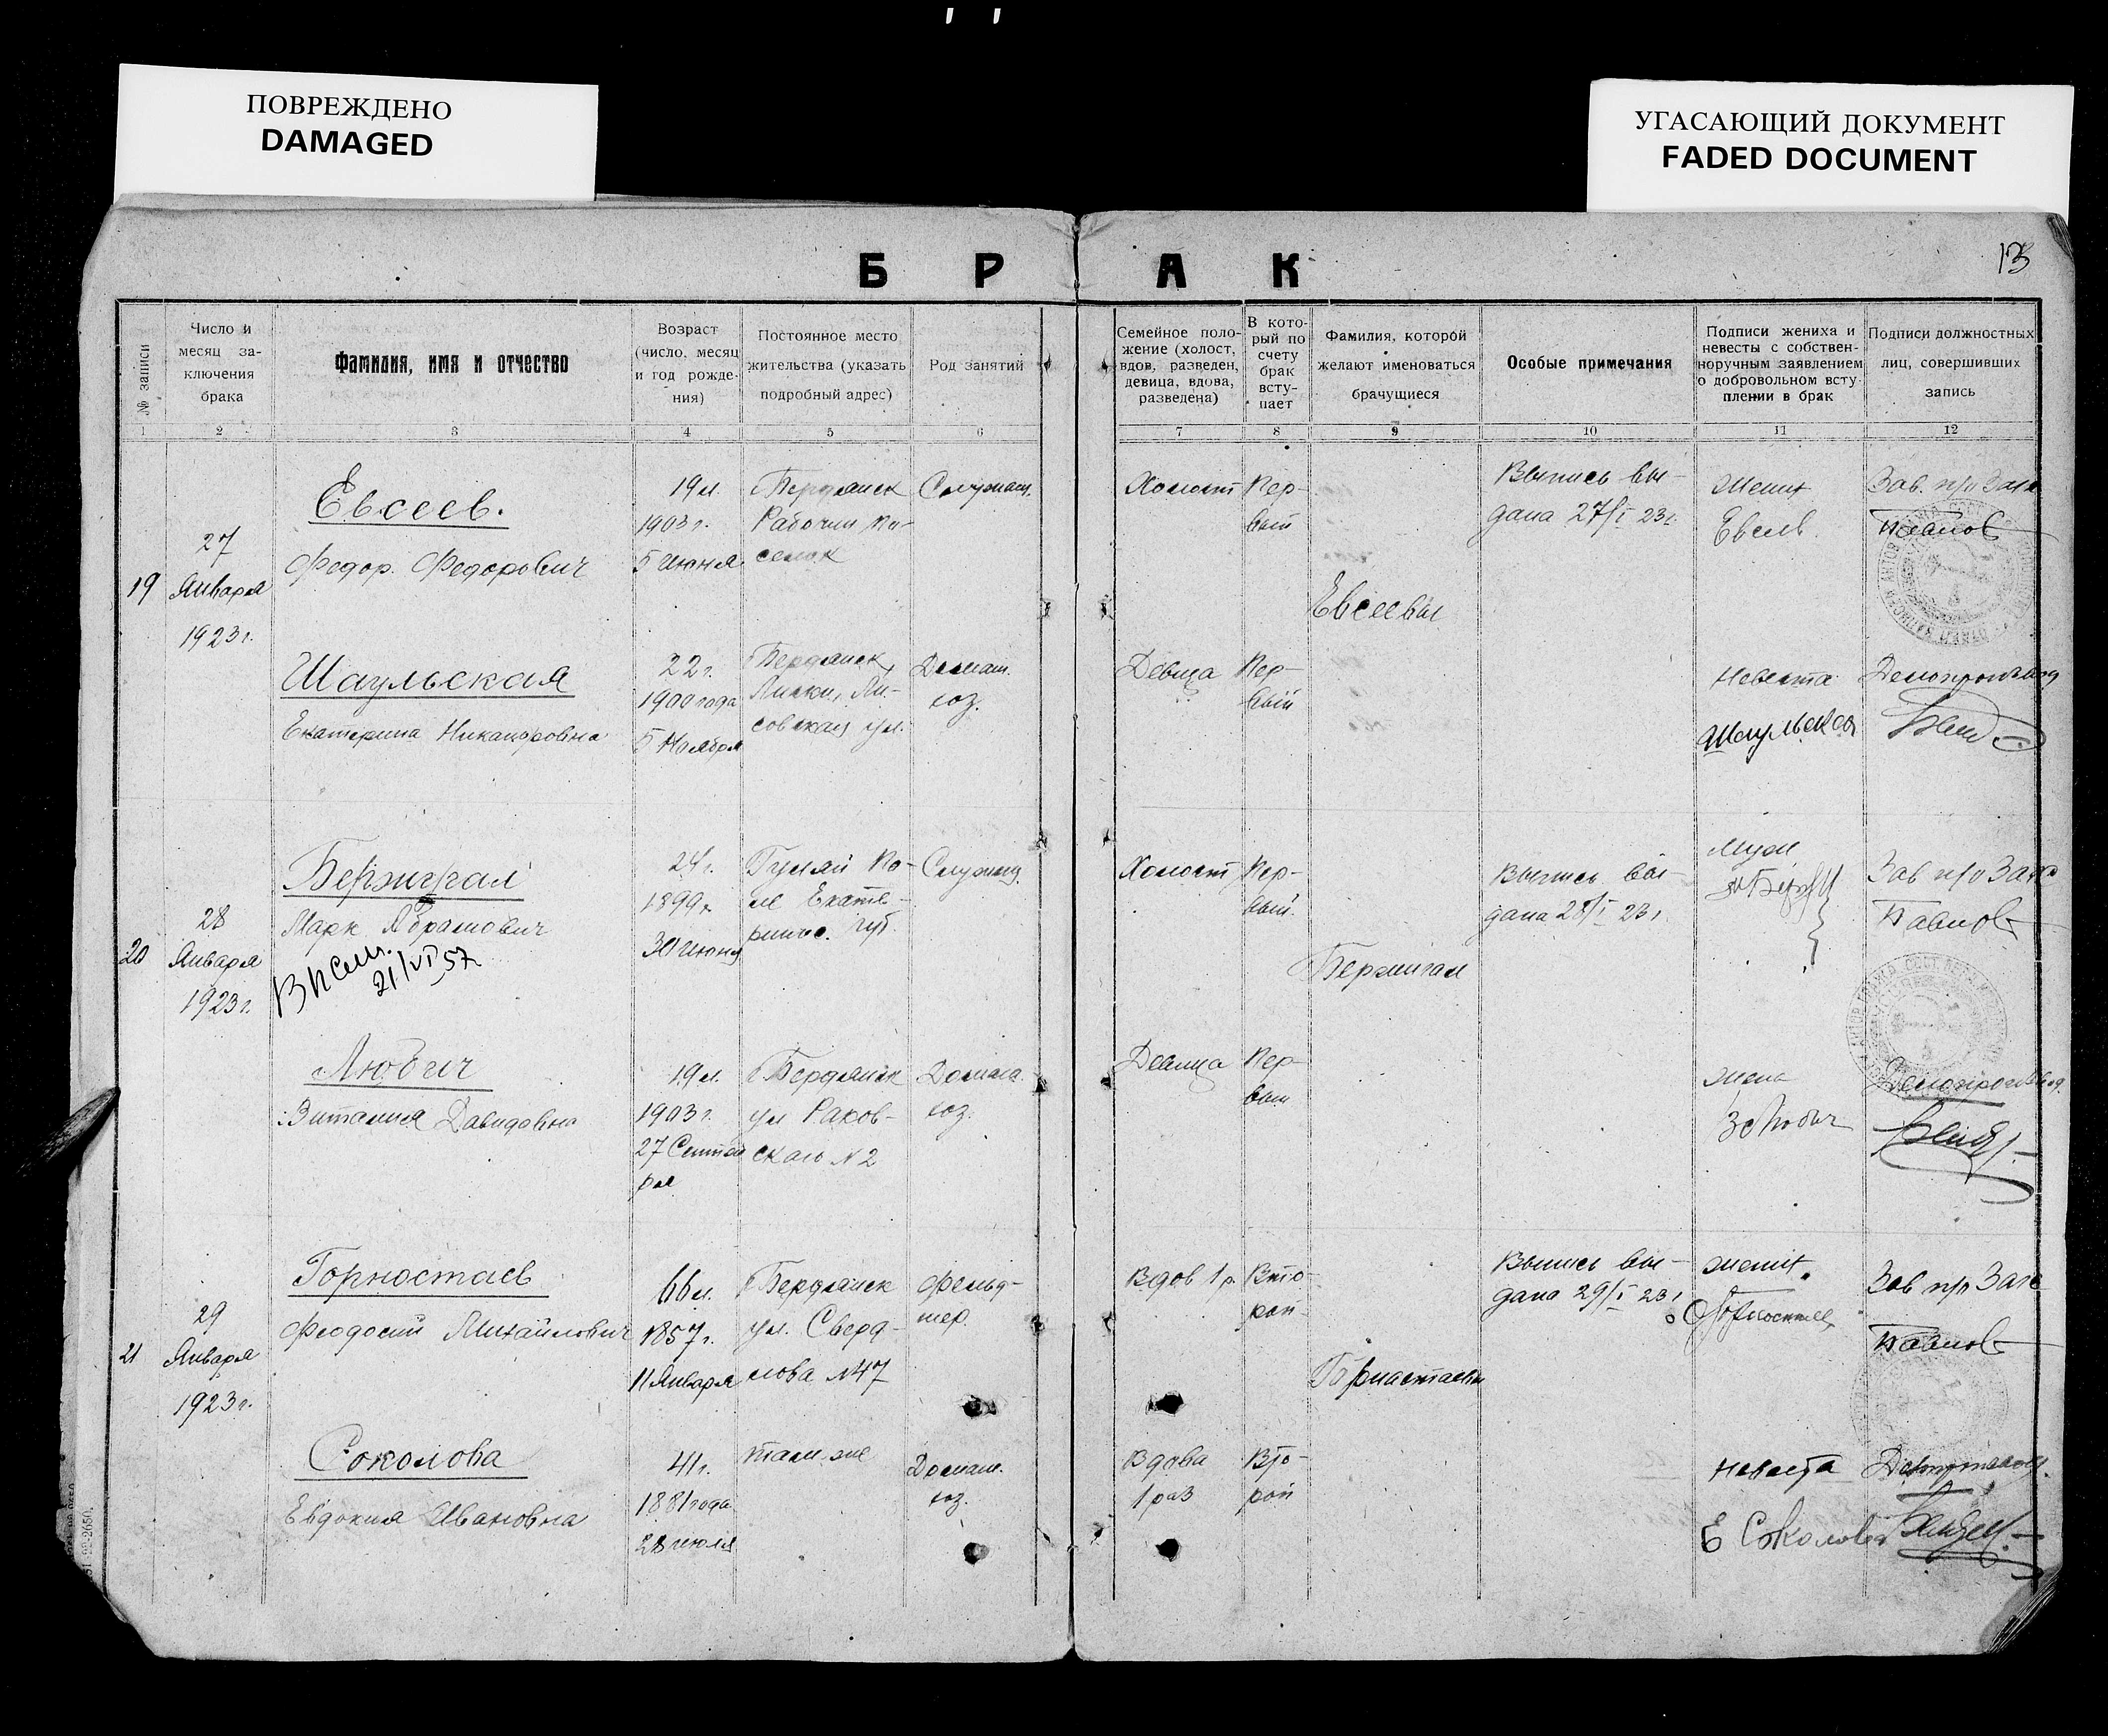 ПОВРЕЖДЕНО
DAMAGED
УГАСАЮЩИЙ ДОКУМЕНТ
FADED DOCUMENT
13
БРАК
№ записи
Число и
месяц за-
ключения
брака
Фамилия, имя и отчество
Возраст
(число, месяц
и год рожде-
ния)
Постоянное место
жительства (указать
подробный адрес)
Род занятий
Семейное поло-
жение (холост,
вдов, разведен,
девица, вдова,
разведена)
В кото-
рый по
счету
брак
всту-
пает
Фамилия, которой
желают именоваться
брачущиеся
Особые примечания
Подписи жениха и
невесты с собствен-
норучным заявлением
о добровольном всту-
плении в брак
Подписи должностных
лиц, совершивших
запись
1 2 3 4 5 6 7 8 9 10 11 12
19
27
Января
1923г.
Евсеев.
Федор. Федорович
19 л.
1903 г.
5 июня
Бердянск
Рабочий по-
селок
Служащ.
Холост
Пер-
вый
Евсеевы
Выпись вы-
дана 27/I 23г.
Жених
Зав. п/о Загс
Павлов
Шаульская
Екатерина Никаноровна
22 г.
1900 года
5 Ноября
Бердянск,
Лиски, Ли-
совская ул.
Домаш.
хоз.
Девица
Пер-
вый
Невеста
Шаульская
Делопроизвод
20
28
Января
1923г.
Бержигал
Марк Абрамович
21/VI 57
24 г.
1899 г.
30 июня
Гуляй По-
ле Екате-
ринос. губ.
Служащ.
Холост
Пер-
вый.
Бержигал
Выпись вы-
дана 28/I 23г.
Муж
Зав п/о Загс
Павлов
Любич
Виталия Давидовна
19 л.
1903 г.
27 Сентяб
ря
Бердянск
ул Раков-
ского N 2
Домаш.
хоз.
Девица
Пер-
вый
жена
Делопроизвод.
21
29
Января
1923г.
Горностаев
Феодосий Михайлович
66 л.
1857 г.
11 Января
Бердянск
ул. Сверд-
лова N 47
Фельд-
шер.
Вдов 1 р.
Вто-
рой
Горностаевы
Выпись вы-
дана 29/I 23г
жених
Зав п/о Загс
Павлов
Соколова
Евдокия Ивановна
41 г.
1881 года
28 июля
там же
Домаш.
хоз.
Вдова
1 раз
Вто-
рой
Невеста
Е Соколова
Делопроизвод.